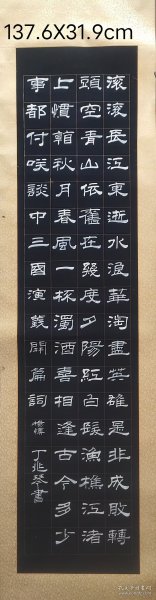 137.6X31.9cm
滾滾長江東逝水浪華淘盡英雄是非成敗轉
頭空青山依舊在幾度夕陽紅白髮漁樵江渚
上慣看秋月春風一杯濁酒喜相逢古今多少
事都付笑談中三國演義開篇詞 丁兆琴書